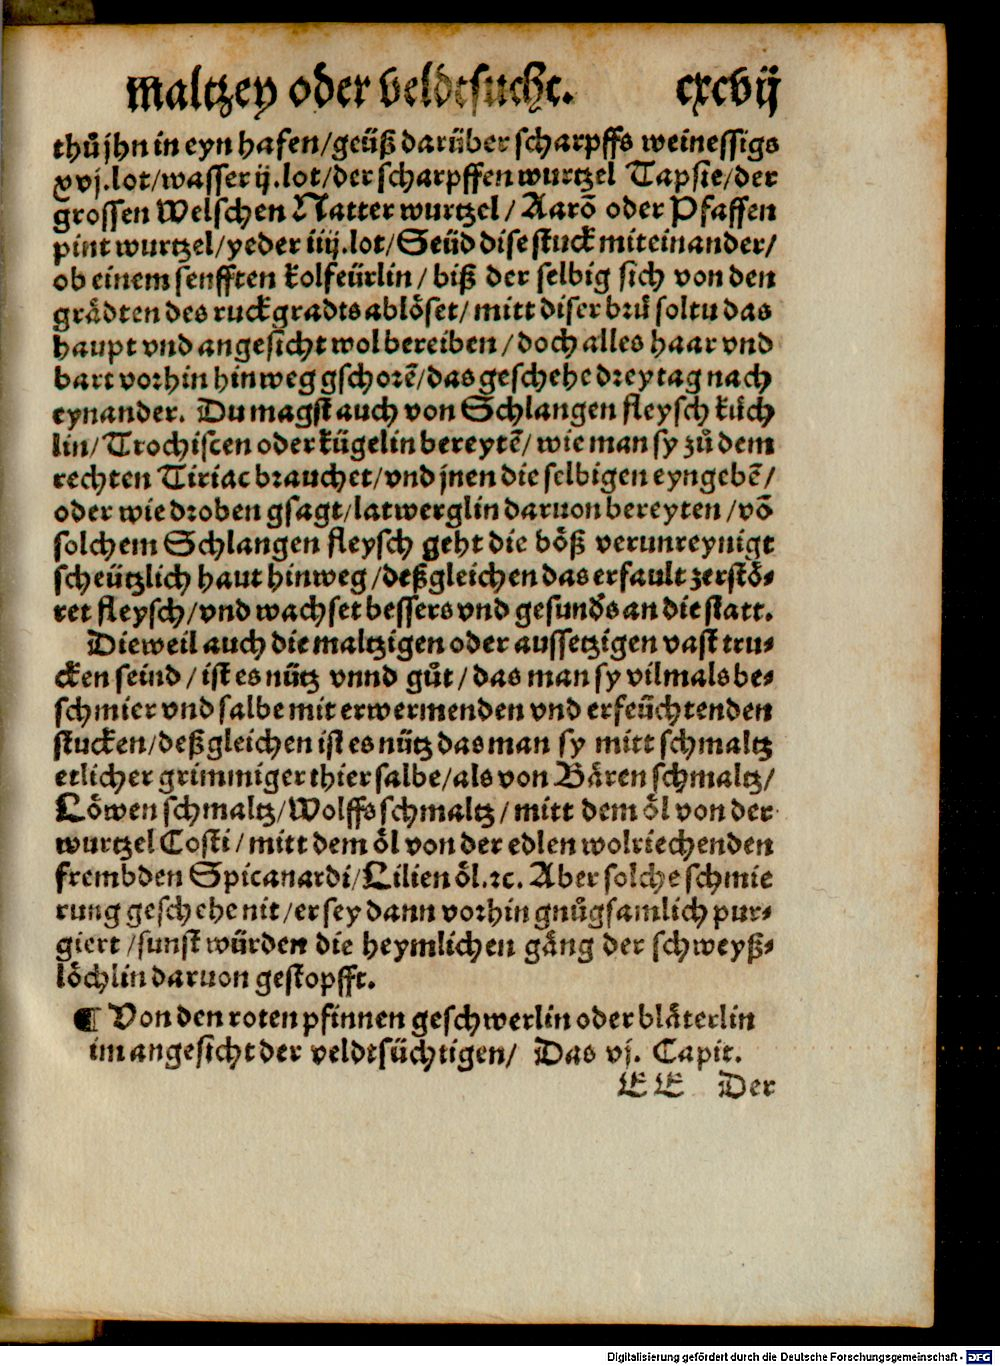 maltzey oder veldtsucht. cxcvij
thuͦ jhn in eyn hafen/geüß darüber scharpffs weinessigs
xvj.lot/wasser ij.lot/der scharpffen wurtzel Tapsie/der
grossen Welschen Natter wurtzel/ Aarõ oder Pfaffen
pint wurtzel/yeder iiij.lot/Seüd dise stuck mit einander/
ob einem senfften kolfeürlin/ biß der selbig sich von den
grådten des ruckgradts ablöset/ mitt diser bruͤ soltu das
haupt vnd angesicht wol bereiben/doch alles haar vnd
bart vorhin hinweg gschorẽ/das geschehe drey tag nach
eynander. Du magst auch von Schlangen fleysch kuͤch
lin/Trochiscen oder kügelin bereytẽ/wie man sy zuͦ dem
rechten Tiriac brauchet/vnd jnen die selbigen eyngebẽ/
oder wie droben gsagt/latwerglin daruon bereyten/võ
solchem Schlangen fleysch geht die böß verunreynigt
scheützlich haut hinweg/deßgleichen das erfault zerstö⸗
ret fleysch/vnd wachset bessers vnd gesunds an die statt.
Dieweil auch die maltzigen oder aussetzigen vast tru⸗
cken seind/ist es nütz vnnd guͦt/das man sy vilmals be⸗
schmier vnd salbe mit erwermenden vnd erfeüchtenden
stucken/deßgleichen ist es nütz das man sy mitt schmaltz
etlicher grimmiger thier salbe/als von Bären schmaltz/
Löwen schmaltz/Wolffs schmaltz/mitt dem öl von der
wurtzel Costi/mitt dem öl von der edlen wolriechenden
frembden Spicanardi/Lilien öl.ꝛc. Aber solche schmie
rung geschehe nit/er sey dann vorhin gnuͦgsamlich pur⸗
giert/sunst würden die heymlichen gäng der schweyß⸗
löchlin daruon gestopfft.
¶ Von den roten pfinnen geschwerlin oder bläterlin
im angesicht der veldtsüchtigen/ Das vj. Capit.
EE Der
Digitalisierung gefördert durch die Deutsche Forschungsgemeinschaft - DFG